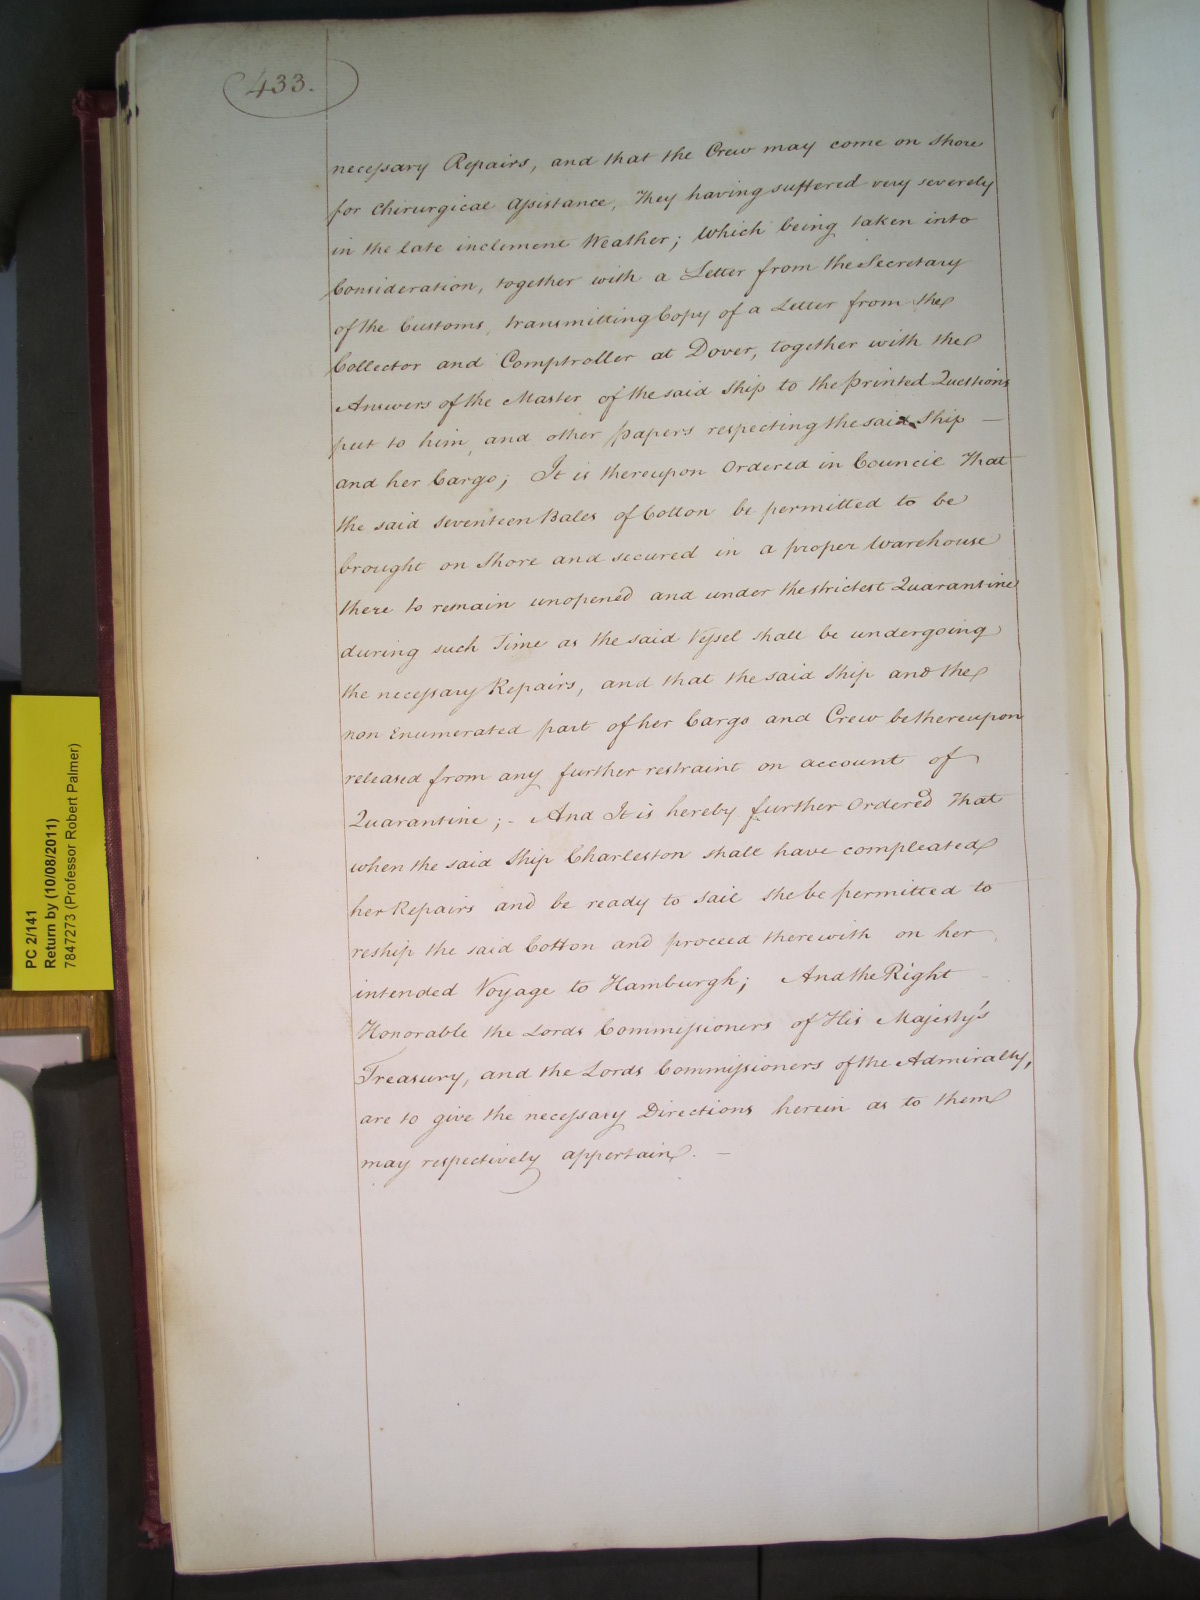 433.
necessary Repairs, and that the Crew may come on Shore
for Chirurgical Assistance, They having suffered very severely
in the late inclement Weather; Which being taken into
Consideration, together with a Letter from the Secretary
of the Customs, transmitting Copy of a Letter from the
Collector and Comptroller at Dover, together with the
Answers of the Master of the said Ship to the printed Questions
put to him, and other papers respecting the said Ship —
and her Cargo; It is thereupon Ordered in Council That
the said Seventeen Bales of Cotton be permitted to be
brought on Shore and secured in a proper Warehouse
there to remain unopened and under the strictest Quarantine
during such Time as the said Vessel shall be undergoing
the necessary Repairs, and that the said Ship and the
non Enumerated part of her Cargo and Crew be thereupon
released from any further restraint on account of
Quarantine; - And It is hereby further Ordered That
when the said Ship Charleston shall have compleated
her Repairs and be ready to sail she be permitted to
reship the said Cotton and proceed therewith on her
intended Voyage to Hamburgh; And the Right —
Honorable the Lords Commissioners of His Majesty's
Treasury, and the Lords Commissioners of the Admiralty,
are to give the necessary Directions herein as to them
may respectively appertain. —
PC 2/141
Return by (10/08/2011)
7847273 (Professor Robert Palmer)